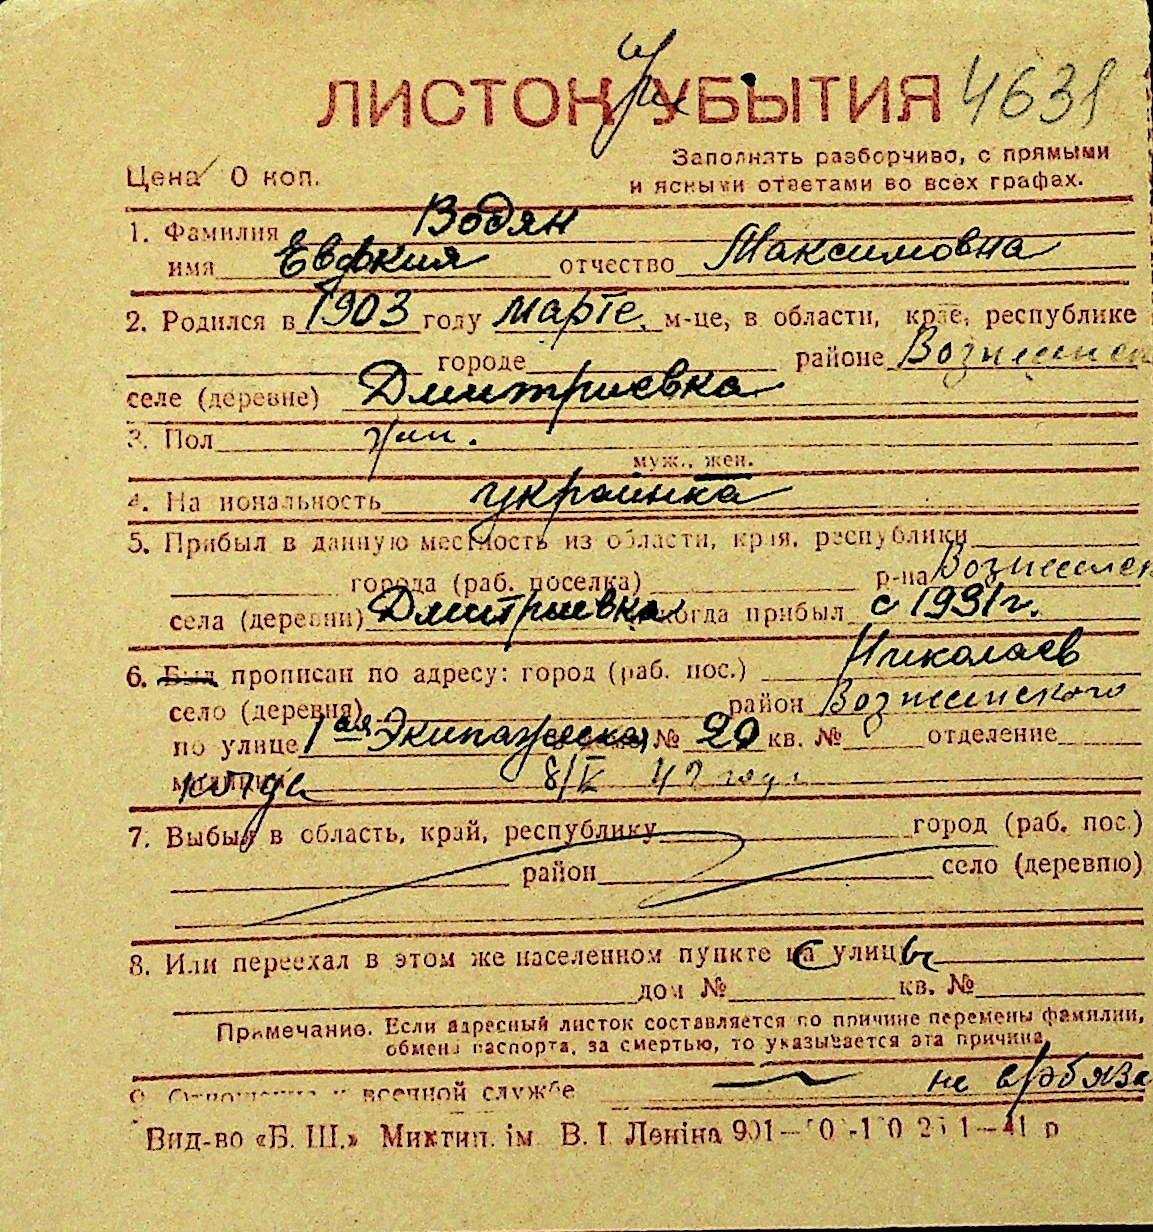 ЛИСТОК УБЫТИЯ 4631
Заполнять разборчиво, с прямыми
Цена 0 коп.
и ясными ответами во всех графах.
1. Фамилия Водян
имя Евфкия отчество Максимовна
2. Родился в 1903 году марте м-це, в области, крае, республике
городе районе Вознесенск
селе (деревне) Дмитриевка
3. Пол жен.
муж., жен.
4. Национальность украинка
5. Прибыл в данную местность из области, края, республики
города (раб. поселка) р-на Вознесенск
села (деревни) Дмитриевка когда прибыл с 1931 г.
6. Был прописан по адресу: город (раб. пос.) Николаев
село (деревня) район Вознесенского
по улице 1ая Экипажеская № 20 кв. № отделение
милиции когда 8/IV 42 году
7. Выбыл в область, край, республику город (раб. пос.)
район село (деревню)
8. Или переехал в этом же населенном пункте с улицы
дом № кв. №
Примечание. Если адресный листок составляется по причине перемены фамилии,
обмена паспорта, за смертью, то указывается эта причина
9. Отношение к военной службе не вобяза
Вид-во «Б. Ш.» Миктип. ім В. І. Леніна